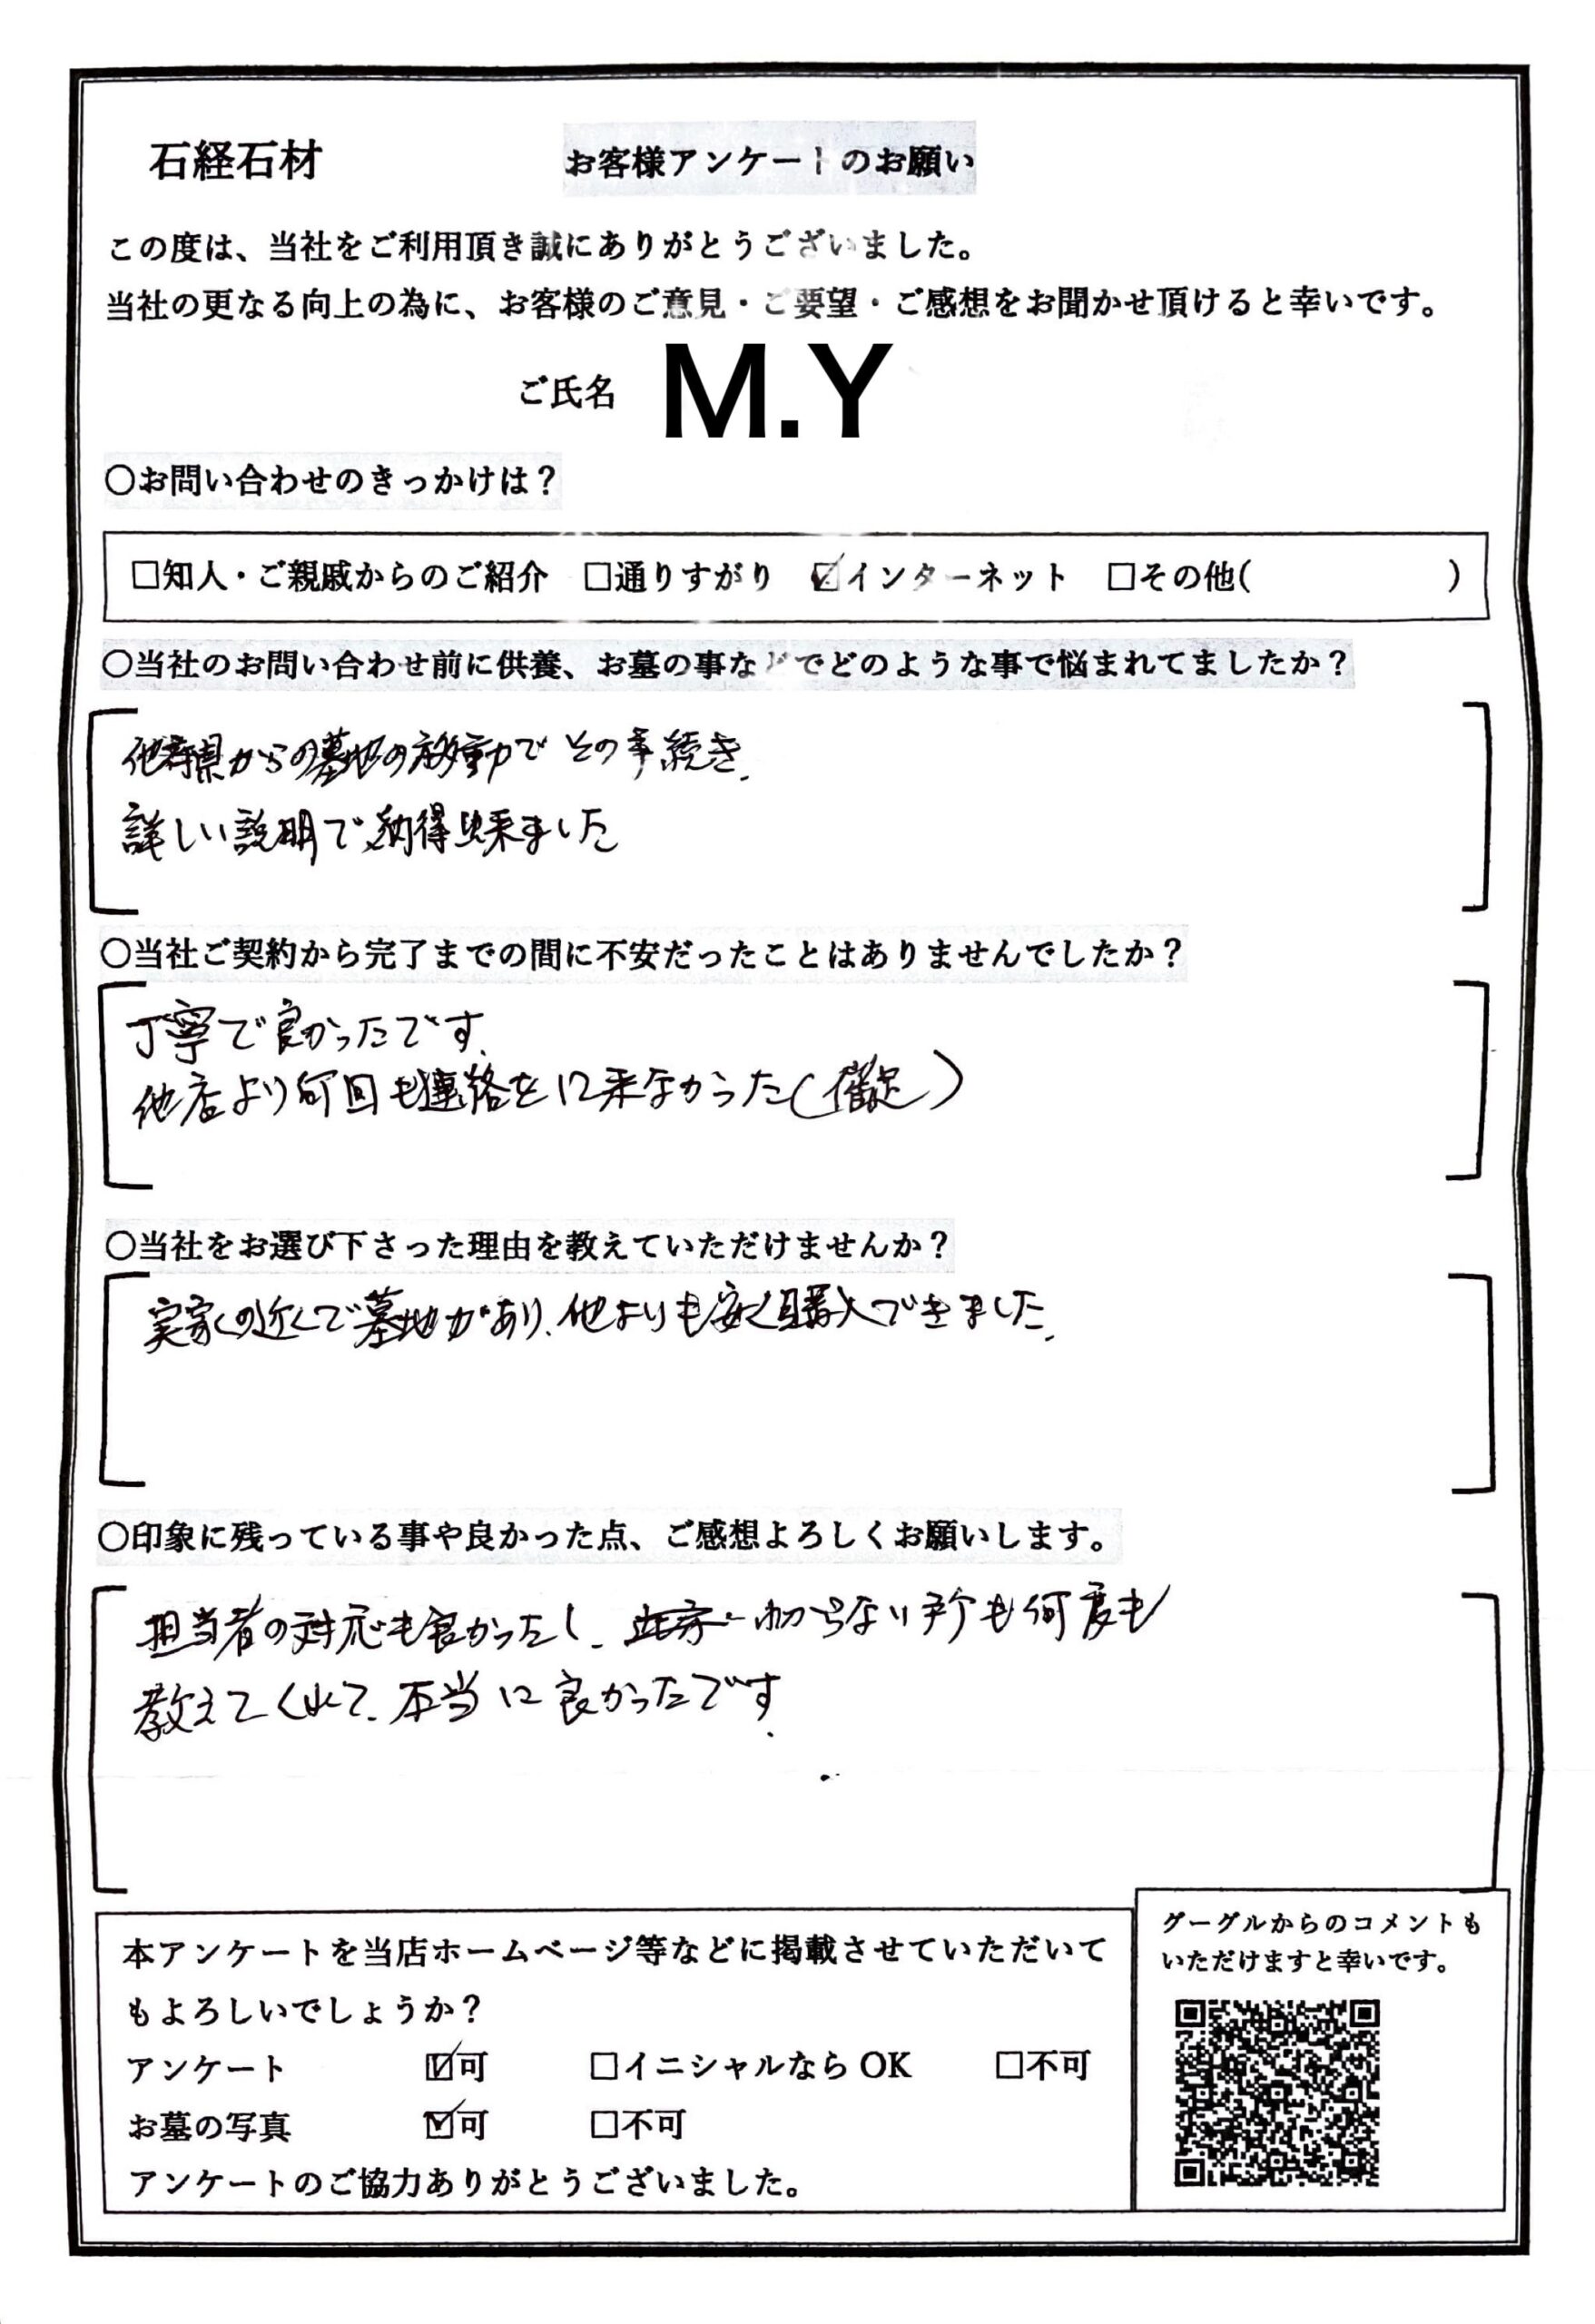 石経石材
お客様アンケートのお願い
この度は、当社をご利用頂き誠にありがとうございました。
当社の更なる向上の為に、お客様のご意見・ご要望・ご感想をお聞かせ頂けると幸いです。
ご氏名 M.Y
○お問い合わせのきっかけは？
□知人・ご親戚からのご紹介 □通りすがり ☑インターネット □その他( )
○当社のお問い合わせ前に供養、お墓の事などでどのような事で悩まれてましたか？
他県からの墓地の移動でその手続き.
詳しい説明で納得出来ました
○当社ご契約から完了までの間に不安だったことはありませんでしたか？
丁寧で良かったです.
他店より何回も連絡をに来なかった(催促)
○当社をお選び下さった理由を教えていただけませんか？
実家の近くで墓地があり、他よりも安く購入できました.
○印象に残っている事や良かった点、ご感想よろしくお願いします。
担当者の対応も良かったし、わからない所も何度も
教えてくれて、本当に良かったです.
本アンケートを当店ホームページ等などに掲載させていただいて
もよろしいでしょうか？
アンケート ☑可 □イニシャルなら OK □不可
お墓の写真 ☑可 □不可
アンケートのご協力ありがとうございました。
グーグルからのコメントも
いただけますと幸いです。